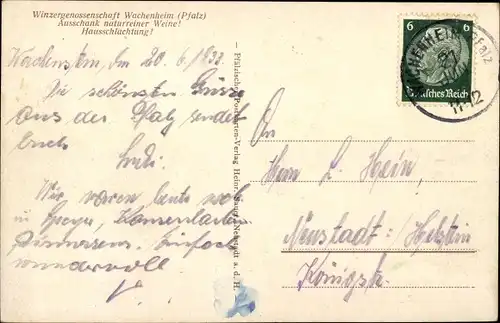 Winzergenossenschaft Wachenheim (Pfalz)
Ausschank naturreiner Weine!
Hausschlachtung!
den 20. 6.
Die schönsten Grüße
aus der Pfalz sendet
Euch
Wir waren heute
in Speyer, Kaiserslautern
Pirmasens. Einfach
wundervoll
Pfälzischer Postkarten-Verlag Heinr. Neustadt a. d. H.
6 6
Deutsches Reich
WACHENHEIM (Pfalz)
11-12
An
Herrn L. Hein,
Neustadt: Holstein
Königstr.